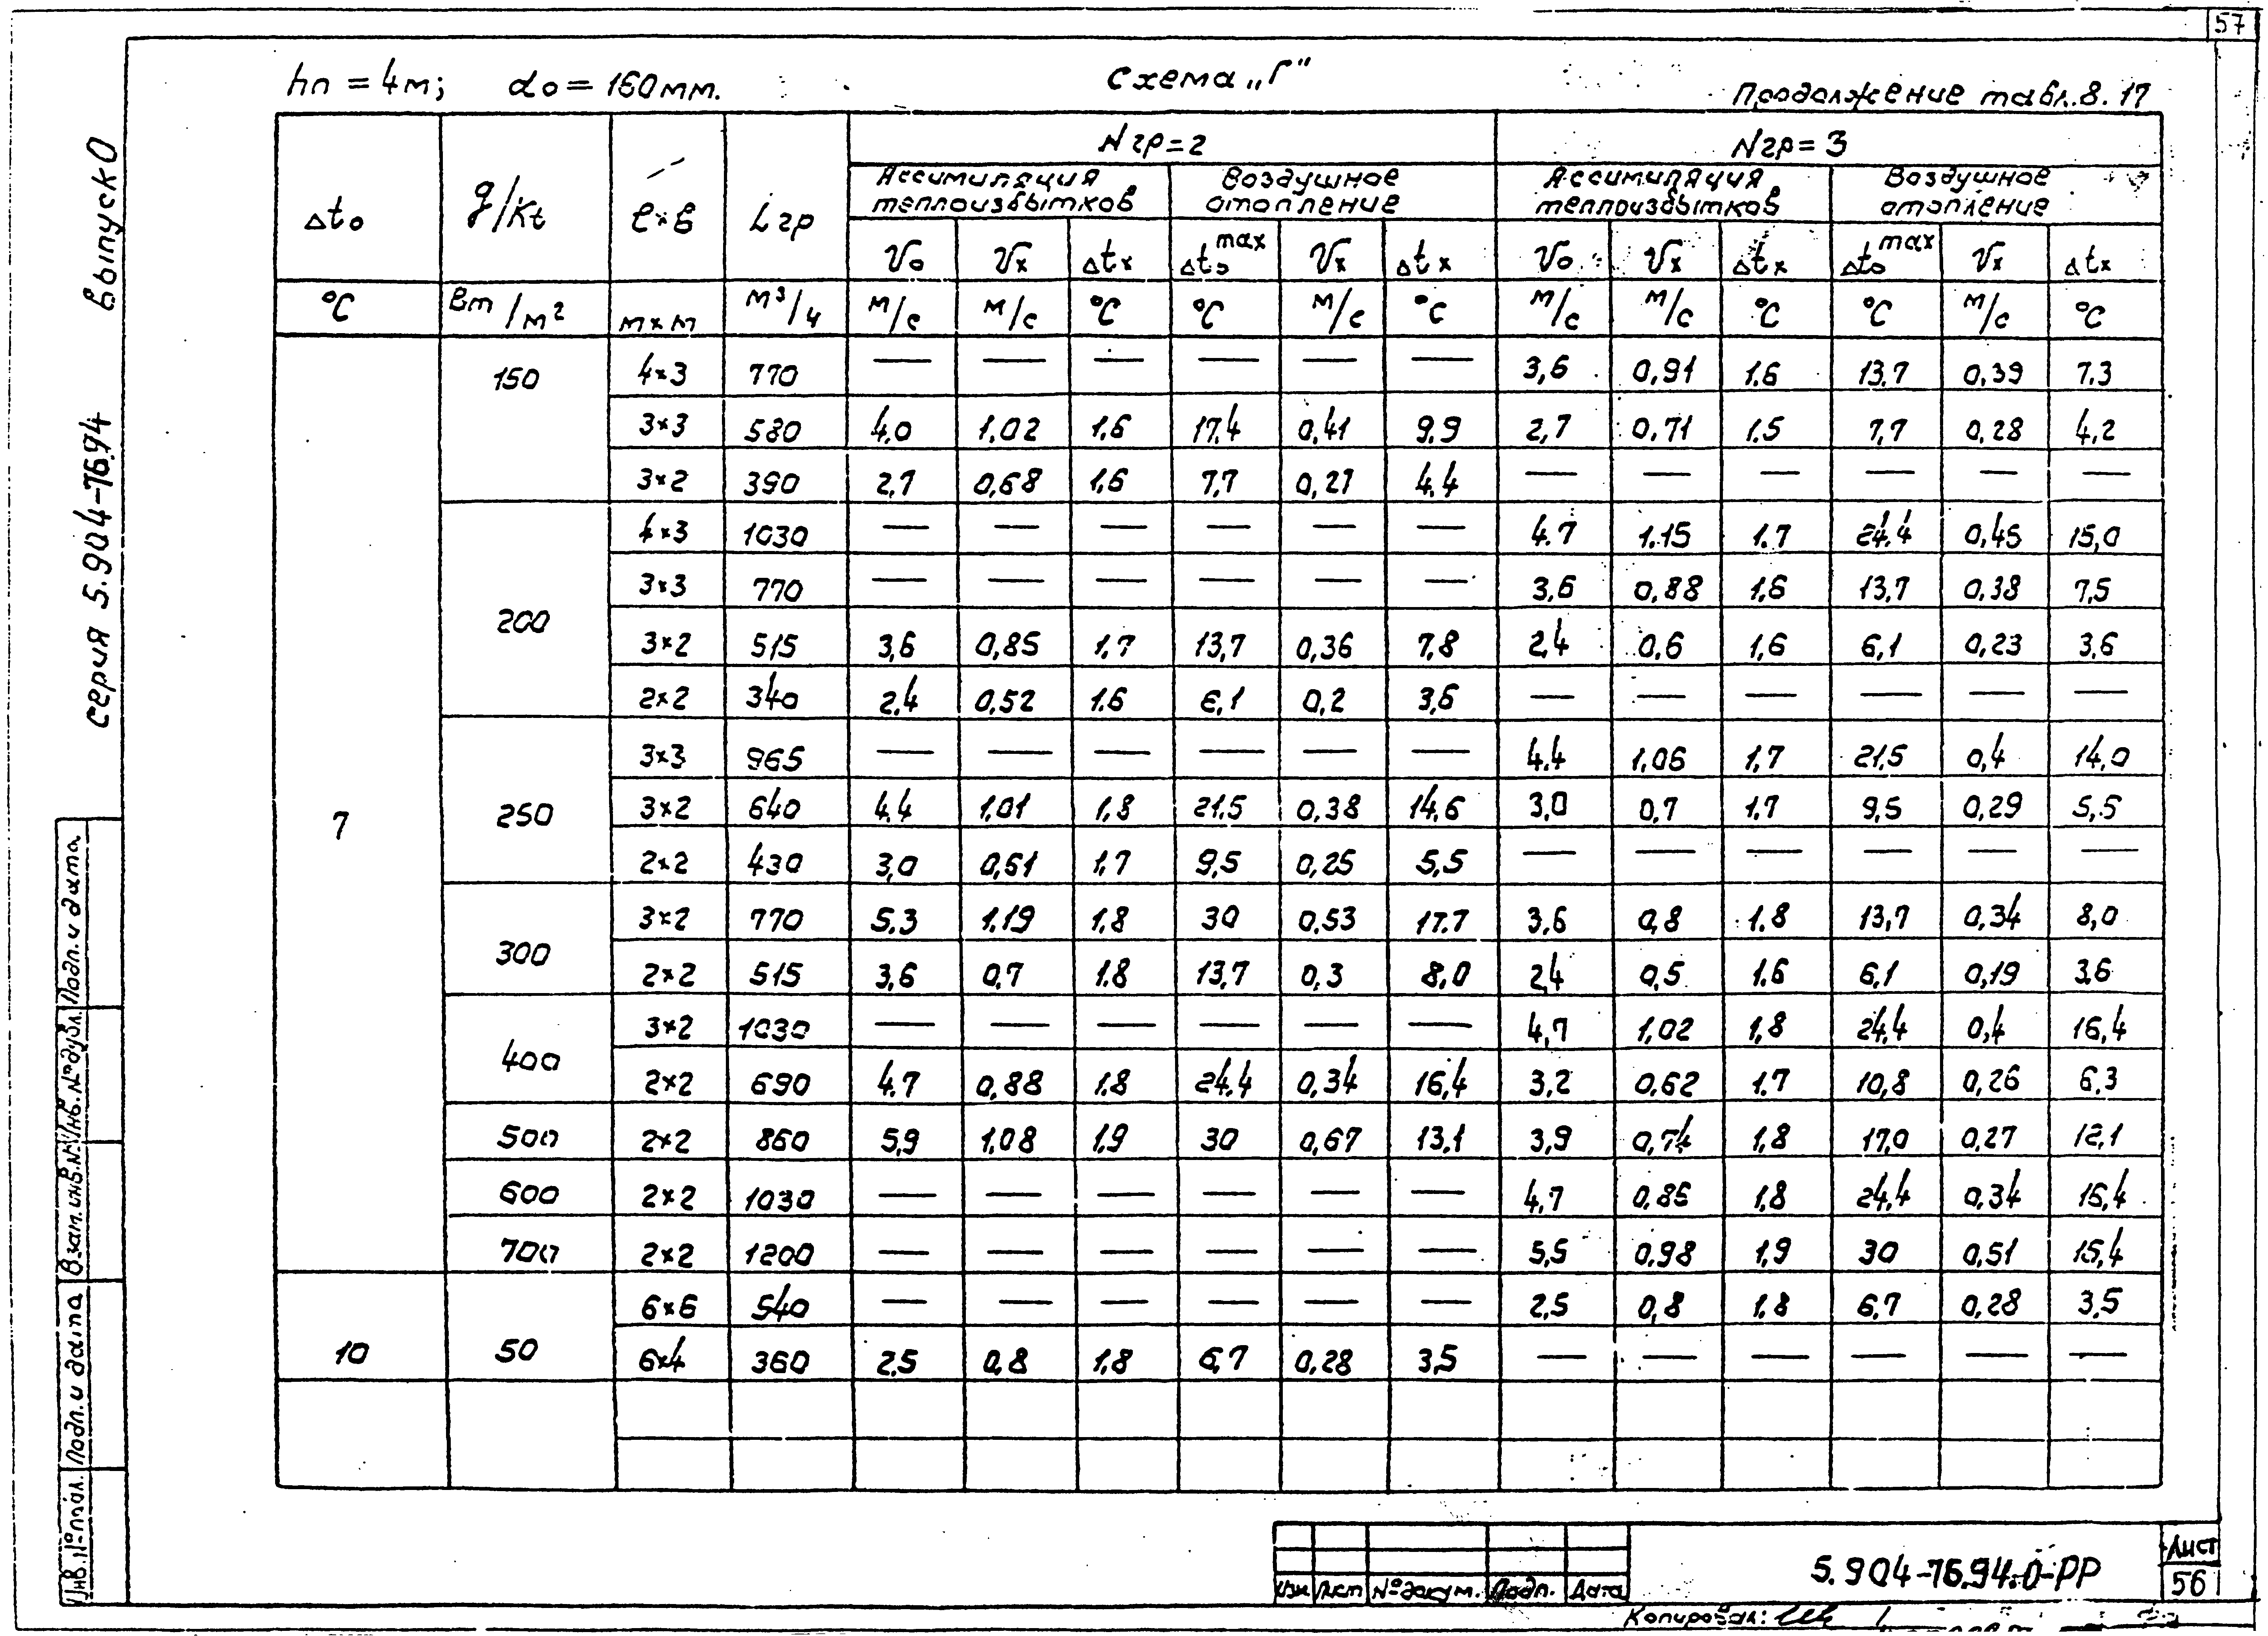 57
hп = 4м; do = 160мм. Схема „Г" Продолжение табл. 8.17
Δto g/Kt ℓ×в Lгр Nгр=2 Nгр=3
Ассимиляция теплоизбытков Воздушное отопление Ассимиляция теплоизбытков Воздушное отопление
Vo Vx Δtx Δto max Vx Δtx Vo Vx Δtx Δto max Vx Δtx
°C Вт/м² м×м м³/ч м/с м/с °C °C м/с °C м/с м/с °C °C м/с °C
7 150 4×3 770 — — — — — — 3,6 0,91 1.6 13.7 0,39 7.3
3×3 580 4,0 1,02 1,6 17,4 0,41 9,9 2,7 0,71 1.5 7,7 0,28 4,2
3×2 390 2,7 0,68 1,6 7,7 0,27 4,4 — — — — — —
200 4×3 1030 — — — — — — 4.7 1.15 1.7 24.4 0,45 15,0
3×3 770 — — — — — — 3,6 0,88 1,6 13,7 0,38 7,5
3×2 515 3,6 0,85 1,7 13,7 0,36 7,8 2,4 0,6 1,6 6,1 0,23 3,6
2×2 340 2,4 0,52 1.6 6,1 0,2 3,6 — — — — — —
250 3×3 965 — — — — — — 4,4 1,06 1,7 21,5 0,4 14,0
3×2 640 4,4 1,01 1,8 21,5 0,38 14,6 3,0 0,7 1,7 9,5 0,29 5,5
2×2 430 3,0 0,61 1,7 9,5 0,25 5,5 — — — — — —
300 3×2 770 5,3 1,19 1,8 30 0,53 17.7 3,6 0,8 1,8 13,7 0,34 8,0
2×2 515 3,6 0,7 1.8 13,7 0,3 8,0 2,4 0,5 1.6 6,1 0,19 3,6
400 3×2 1030 — — — — — — 4,7 1,02 1,8 24,4 0,4 16,4
2×2 690 4,7 0,88 1.8 24,4 0,34 16,4 3,2 0,62 1.7 10,8 0,26 6,3
500 2×2 860 5,9 1,08 1,9 30 0,67 13,1 3,9 0,74 1,8 17,0 0,27 12,1
600 2×2 1030 — — — — — — 4,7 0,85 1,8 24,4 0,34 16,4
700 2×2 1200 — — — — — — 5,5 0,98 1,9 30 0,51 15,4
10 50 6×6 540 — — — — — — 2,5 0,8 1,8 6,7 0,28 3,5
6×4 360 2,5 0,8 1,8 6,7 0,28 3,5 — — — — — —
серия 5.904-76.94 выпуск 0
Инв. № подл. Подп. и дата Взам. инв. № Инв. № дубл. Подп. и дата
Изм Лист № докум. Подп. Дата
5.904-76.94.0-РР
Лист
56
Копировал: